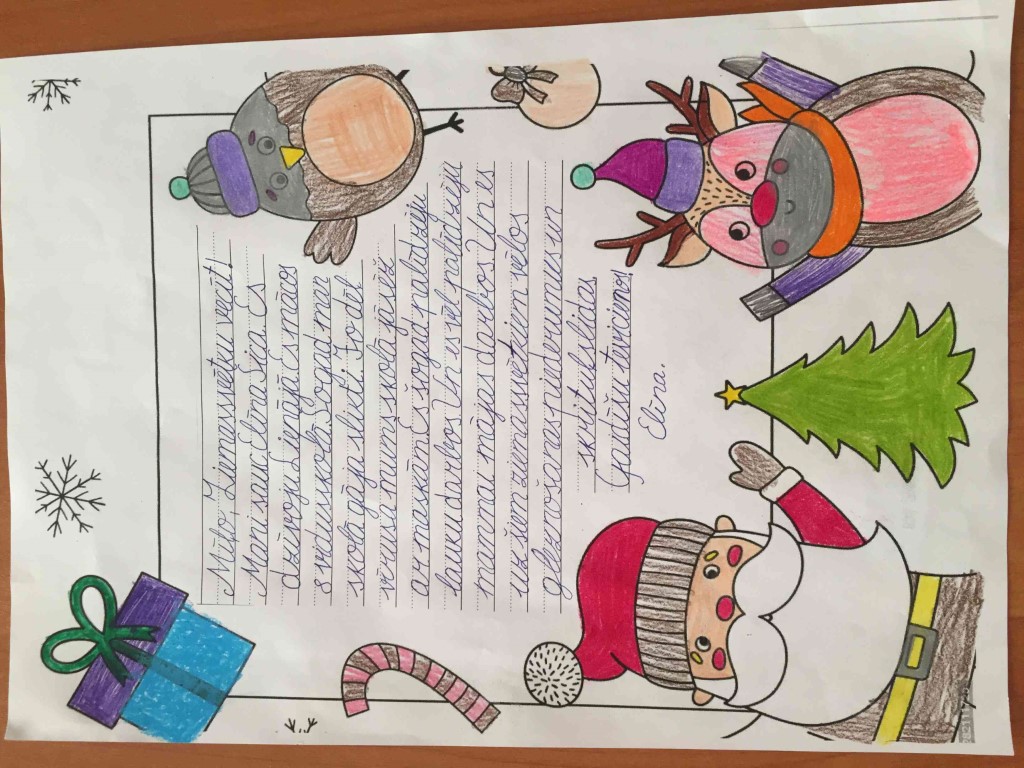 Mīļo, Ziemassvētku vecīt!
Mani sauc Elīna Sņica. Es
dzīvoju Lējņājā Es mācos
svētdskolā. Šogad man
skolā gāja slikti. Jo arī
vīrusa mums skolā jāvēk
ar maskām Es šogad palīdzēju
lauku darbos Un es vēl palīdzēju
mammai mājas darbos Un es
uz šiem ziemassvētkiem vēlos
gleznošanas piederumus un
skrituļslidas
Gaidīšu tevi ciemos!
Elīna.